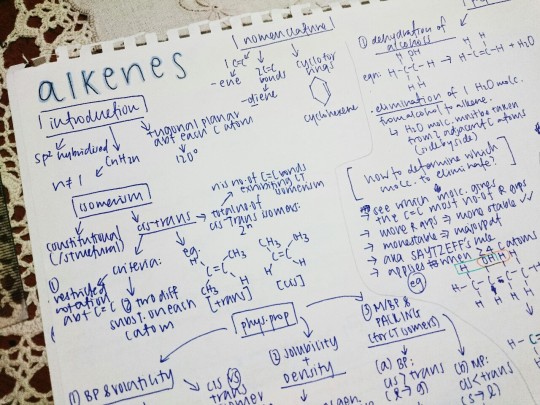 alkenes
introduction
sp² hybridised
CnH2n
n ≠ 1
trigonal planar
abt each C atom
120°
nomenclature
1 C=C
-ene
2 C=C
bonds
-diene
cyclo for
rings
cyclohexene
isomerism
constitutional
(/structural)
cis-trans
n is no. of C=C bonds
exhibiting CT
isomerism
total no. of
cis-trans isomers:
2ⁿ
criteria:
① restricted
rotation
abt C=C
② two diff
subst. on each
C atom
eg
H CH3
C=C
CH3 H
[trans]
CH3 CH3
C=C
H H
[cis]
phys. prop
① BP & volatility
cis vs
trans
② solubility
+
density
③ M/BP &
PACKING
(for CT isomers)
(a) BP:
cis > trans
(b) MP:
cis < trans
① dehydration of
alcohols
eqn:
H OH
H-C-C-H → H-C=C-H + H2O
H H
· elimination of 1 H2O molc.
from alcohol to alkene.
↳ H2O molc. must be taken
from 2 adjacent C atoms
(side by side)
how to determine which
molc. to eliminate?
→ see which molc. gives
the C=C most no. of R grps
→ more R grps ⇒ more stable
→ more stable ⇒ major pdt
→ aka SAYTZEFF's rule
→ applies to when > 4 C atoms
eg
OH H
H-C-C-C-C-H
H H H